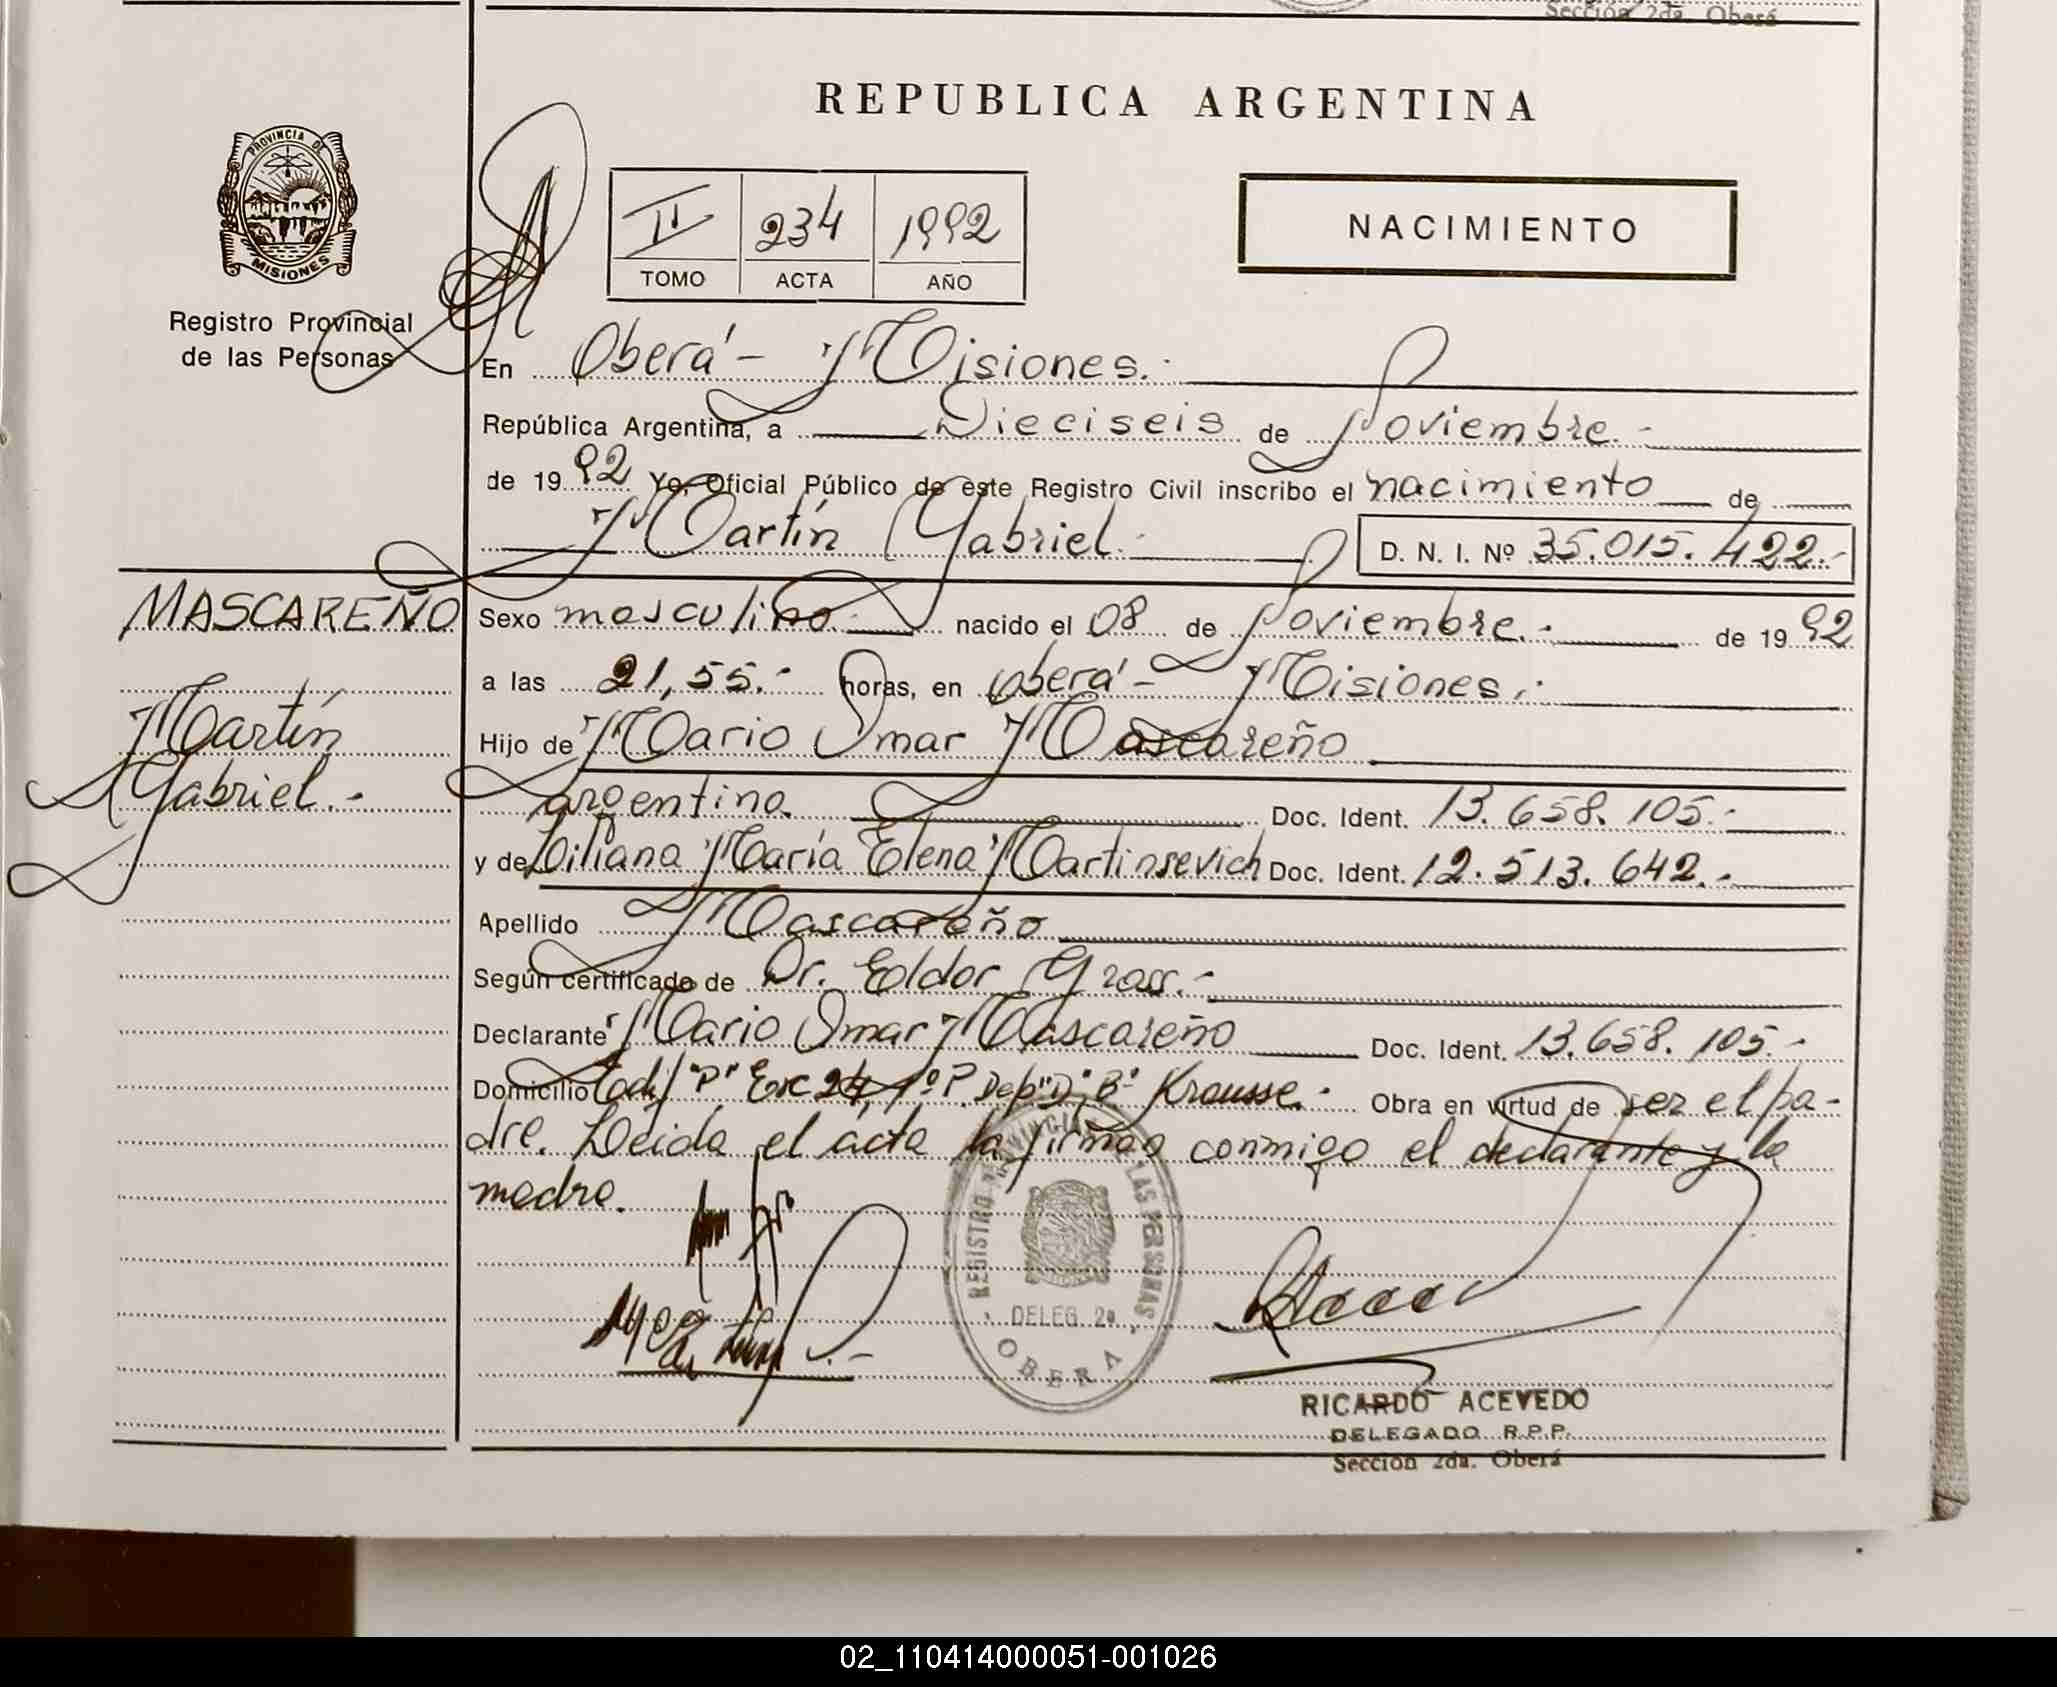 Sección 2da. Oberá
REPUBLICA ARGENTINA
PROVINCIA DE
MISIONES
Registro Provincial
de las Personas
II 234 1992
TOMO ACTA AÑO
NACIMIENTO
En Oberá - Misiones.-
República Argentina, a Dieciseis de Noviembre.-
de 1992 Yo, Oficial Público de este Registro Civil inscribo el nacimiento de
Martín Gabriel.- D. N. I. Nº 35.015.422.-
MASCAREÑO
Martín
Gabriel.-
Sexo masculino.- nacido el 08 de Noviembre.- de 1992
a las 21,55.- horas, en Oberá - Misiones.-
Hijo de Mario Omar Mascareño
argentino Doc. Ident. 13.658.105.-
y de Liliana María Elena Martinsevich Doc. Ident. 12.513.642.-
Apellido Mascareño
Según certificado de Dr. Eldor Gross.-
Declarante Mario Omar Mascareño Doc. Ident. 13.658.105.-
Domicilio Edif "P" Esc 24, 1º P. Dep "D", Bº Krausse.- Obra en virtud de ser el pa-
dre. Leida el acta la firman conmigo el declarante y la
madre.
REGISTRO PROVINCIAL DE LAS PERSONAS
DELEG. 2a.
OBERA
RICARDO ACEVEDO
DELEGADO R.P.P.
Sección 2da. Oberá
02_110414000051-001026